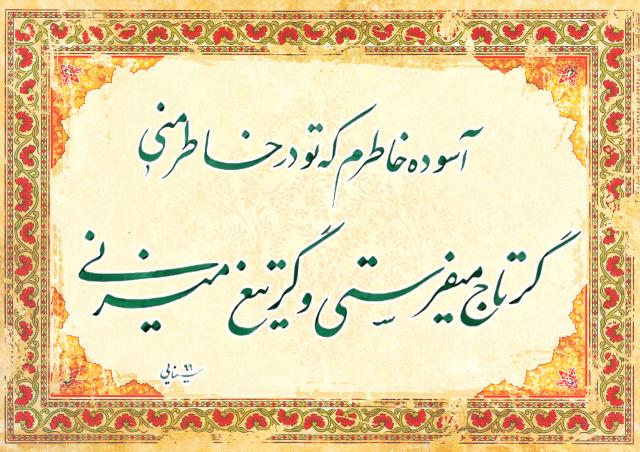 آسوده خاطرم که تو در خاطر منی
گر تاج میفرستی و گر تیغ میزنی